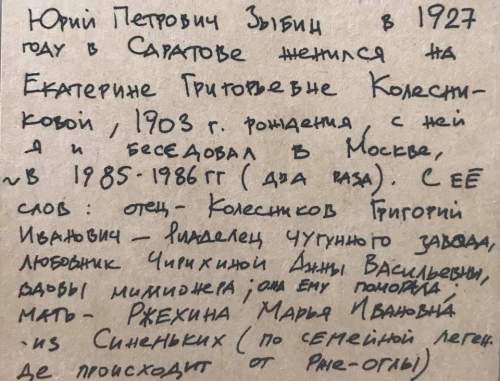 Юрий Петрович Зыбин в 1927
году в Саратове женился на
Екатерине Григорьевне Колесни-
ковой, 1903 г. рождения, с ней
я и беседовал в Москве,
~ в 1985-1986 гг (два раза). С её
слов: отец - Колесников Григорий
Иванович - владелец чугунного завода,
любовник Чирихиной Анны Васильевны,
вдовы миллионера; она ему помогала;
мать - Ржехина Марья Ивановна
- из Синеньких (по семейной леген-
де происходит от Рже-оглы)